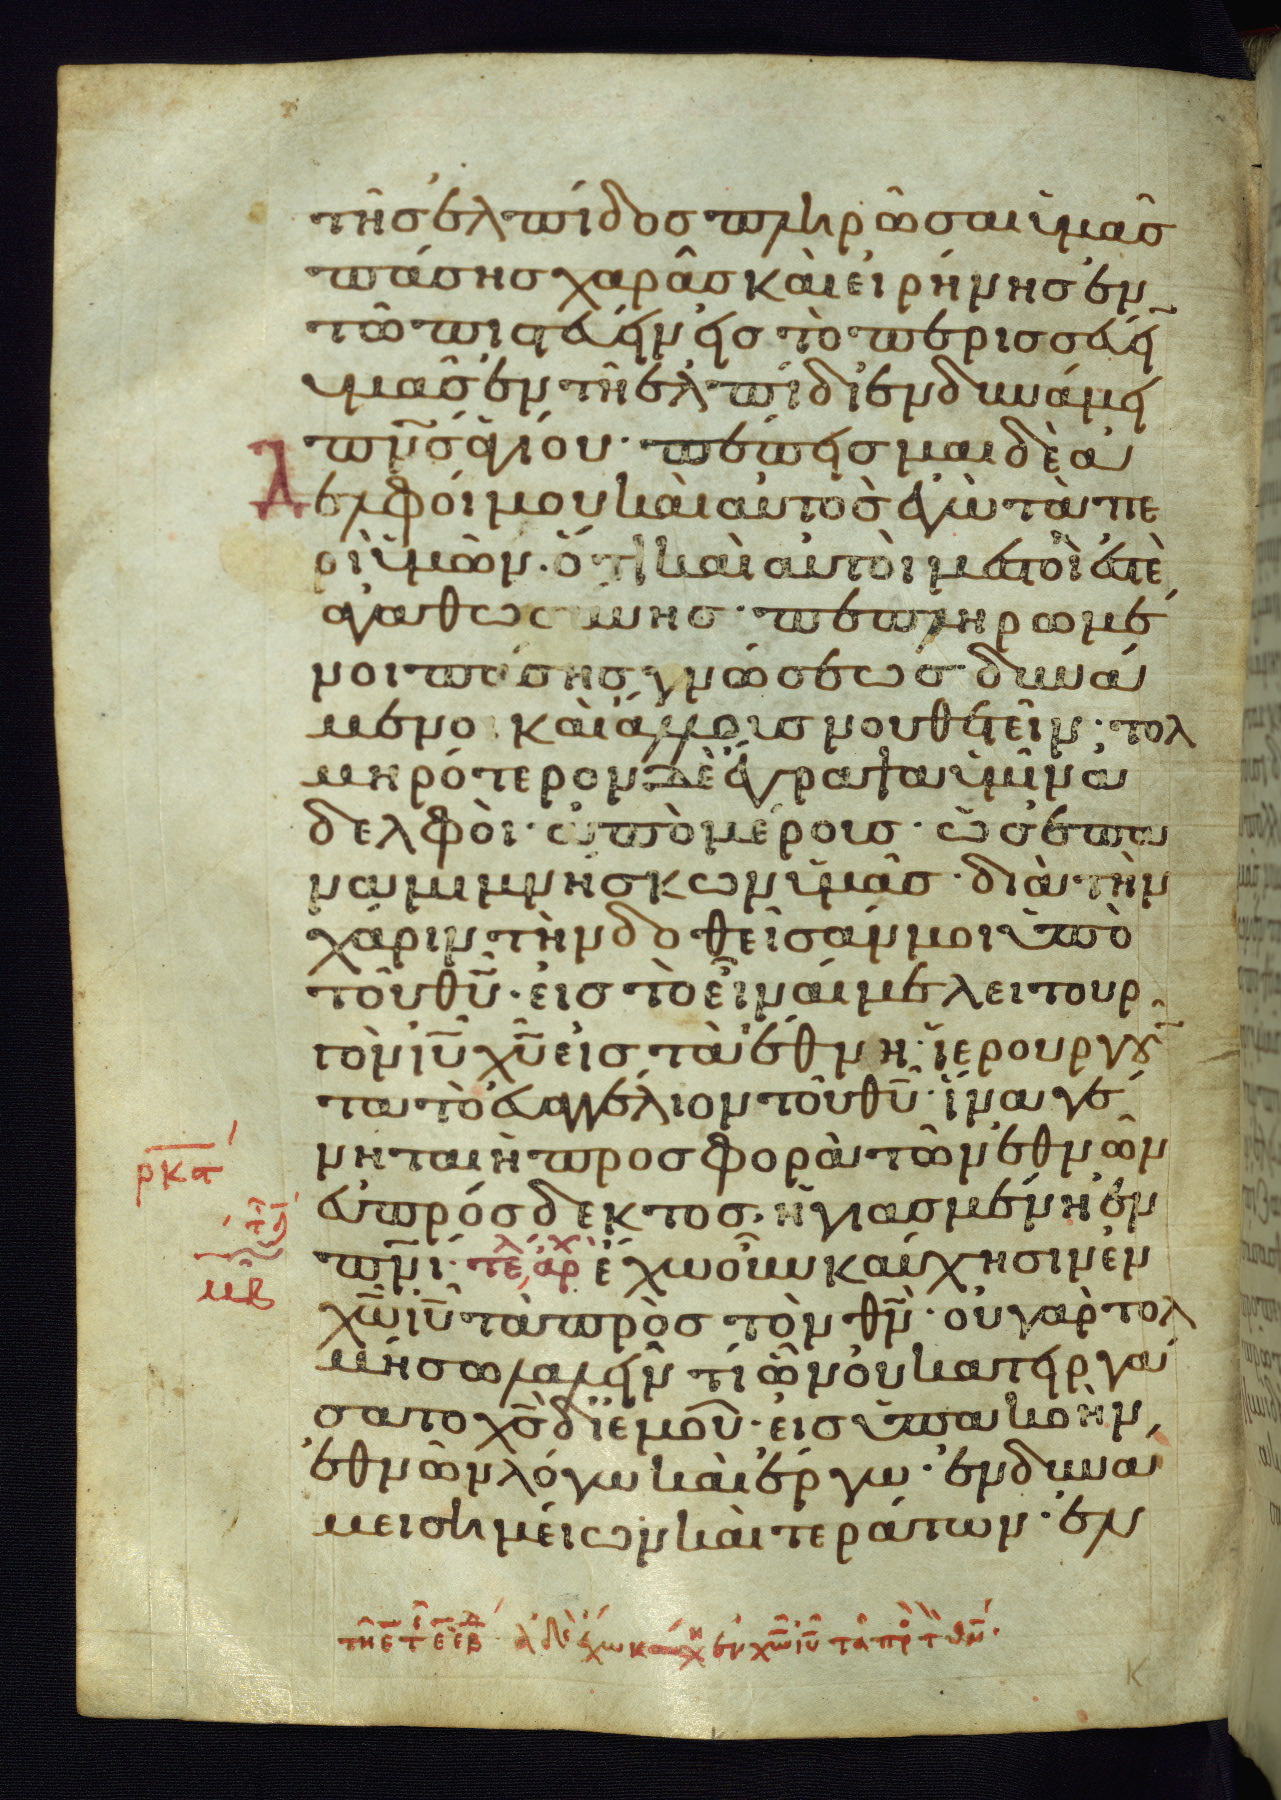 τῆς ἐλπίδος πληρῶσαι ὑμᾶς
πάσης χαρᾶς καὶ εἰρήνης ἐν
τῶ πιστεύειν εἰς τὸ περισσεύειν
ὑμᾶς ἐν τῆ ἐλπίδι ἐν δυνάμει
πν̅ς ἁγίου· πέπεισμαι δὲ ἀ
δελφοί μου καὶ αὐτὸς ἐγὼ τὰ πε
ρὶ ὑμῶν· ὅτι καὶ αὐτοὶ μεστοί ἐστὲ
ἀγαθωσύνης· πεπληρωμέ
νοι πάσης γνώσεως· δυνά
μενοι καὶ ἄλλοις νουθετεῖν· τολ
μηρότερον δὲ ἔγραψα ὑμῖν ἀ
δελφοὶ· ἀπὸ μέρους· ὡς ἐπα
ναμιμνήσκων ὑμᾶς· διὰ τὴν
χάριν τὴν δοθεῖσάν μοι ὑπὸ
τοῦ θ̅υ̅· εἰς τὸ εἶναί με λειτουρ
γὸν ι̅υ̅ χ̅υ̅ εἰς τὰ ἔθνη· ἱερουργοῦν
τα τὸ εὐαγγέλιον τοῦ θ̅υ̅· ἵνα γέ
νηται ἡ προσφορὰ τῶν ἐθνῶν
εὐπρόσδεκτος· ἡγιασμένη ἐν
πν̅ι· τέλ ἀρχ ἔχω οὖν καύχησιν ἐν
χ̅ω̅ ι̅υ̅ τὰ πρὸς τὸν θ̅ν̅· οὐ γὰρ τολ
μήσω λαλεῖν τί ὧν οὐ κατειργά
σατο χ̅ς̅ δἰ ἐμοῦ· εἰς ὑπακοὴν
ἐθνῶν λόγω καὶ ἔργω· ἐν δυνά
μει σημείων καὶ τεράτων· ἐν
ρκα
μβ
ἀδελ ἔχω καύχη ἐν χ̅ω̅ ι̅υ̅ τὰ πρ τ θ̅ν̅·